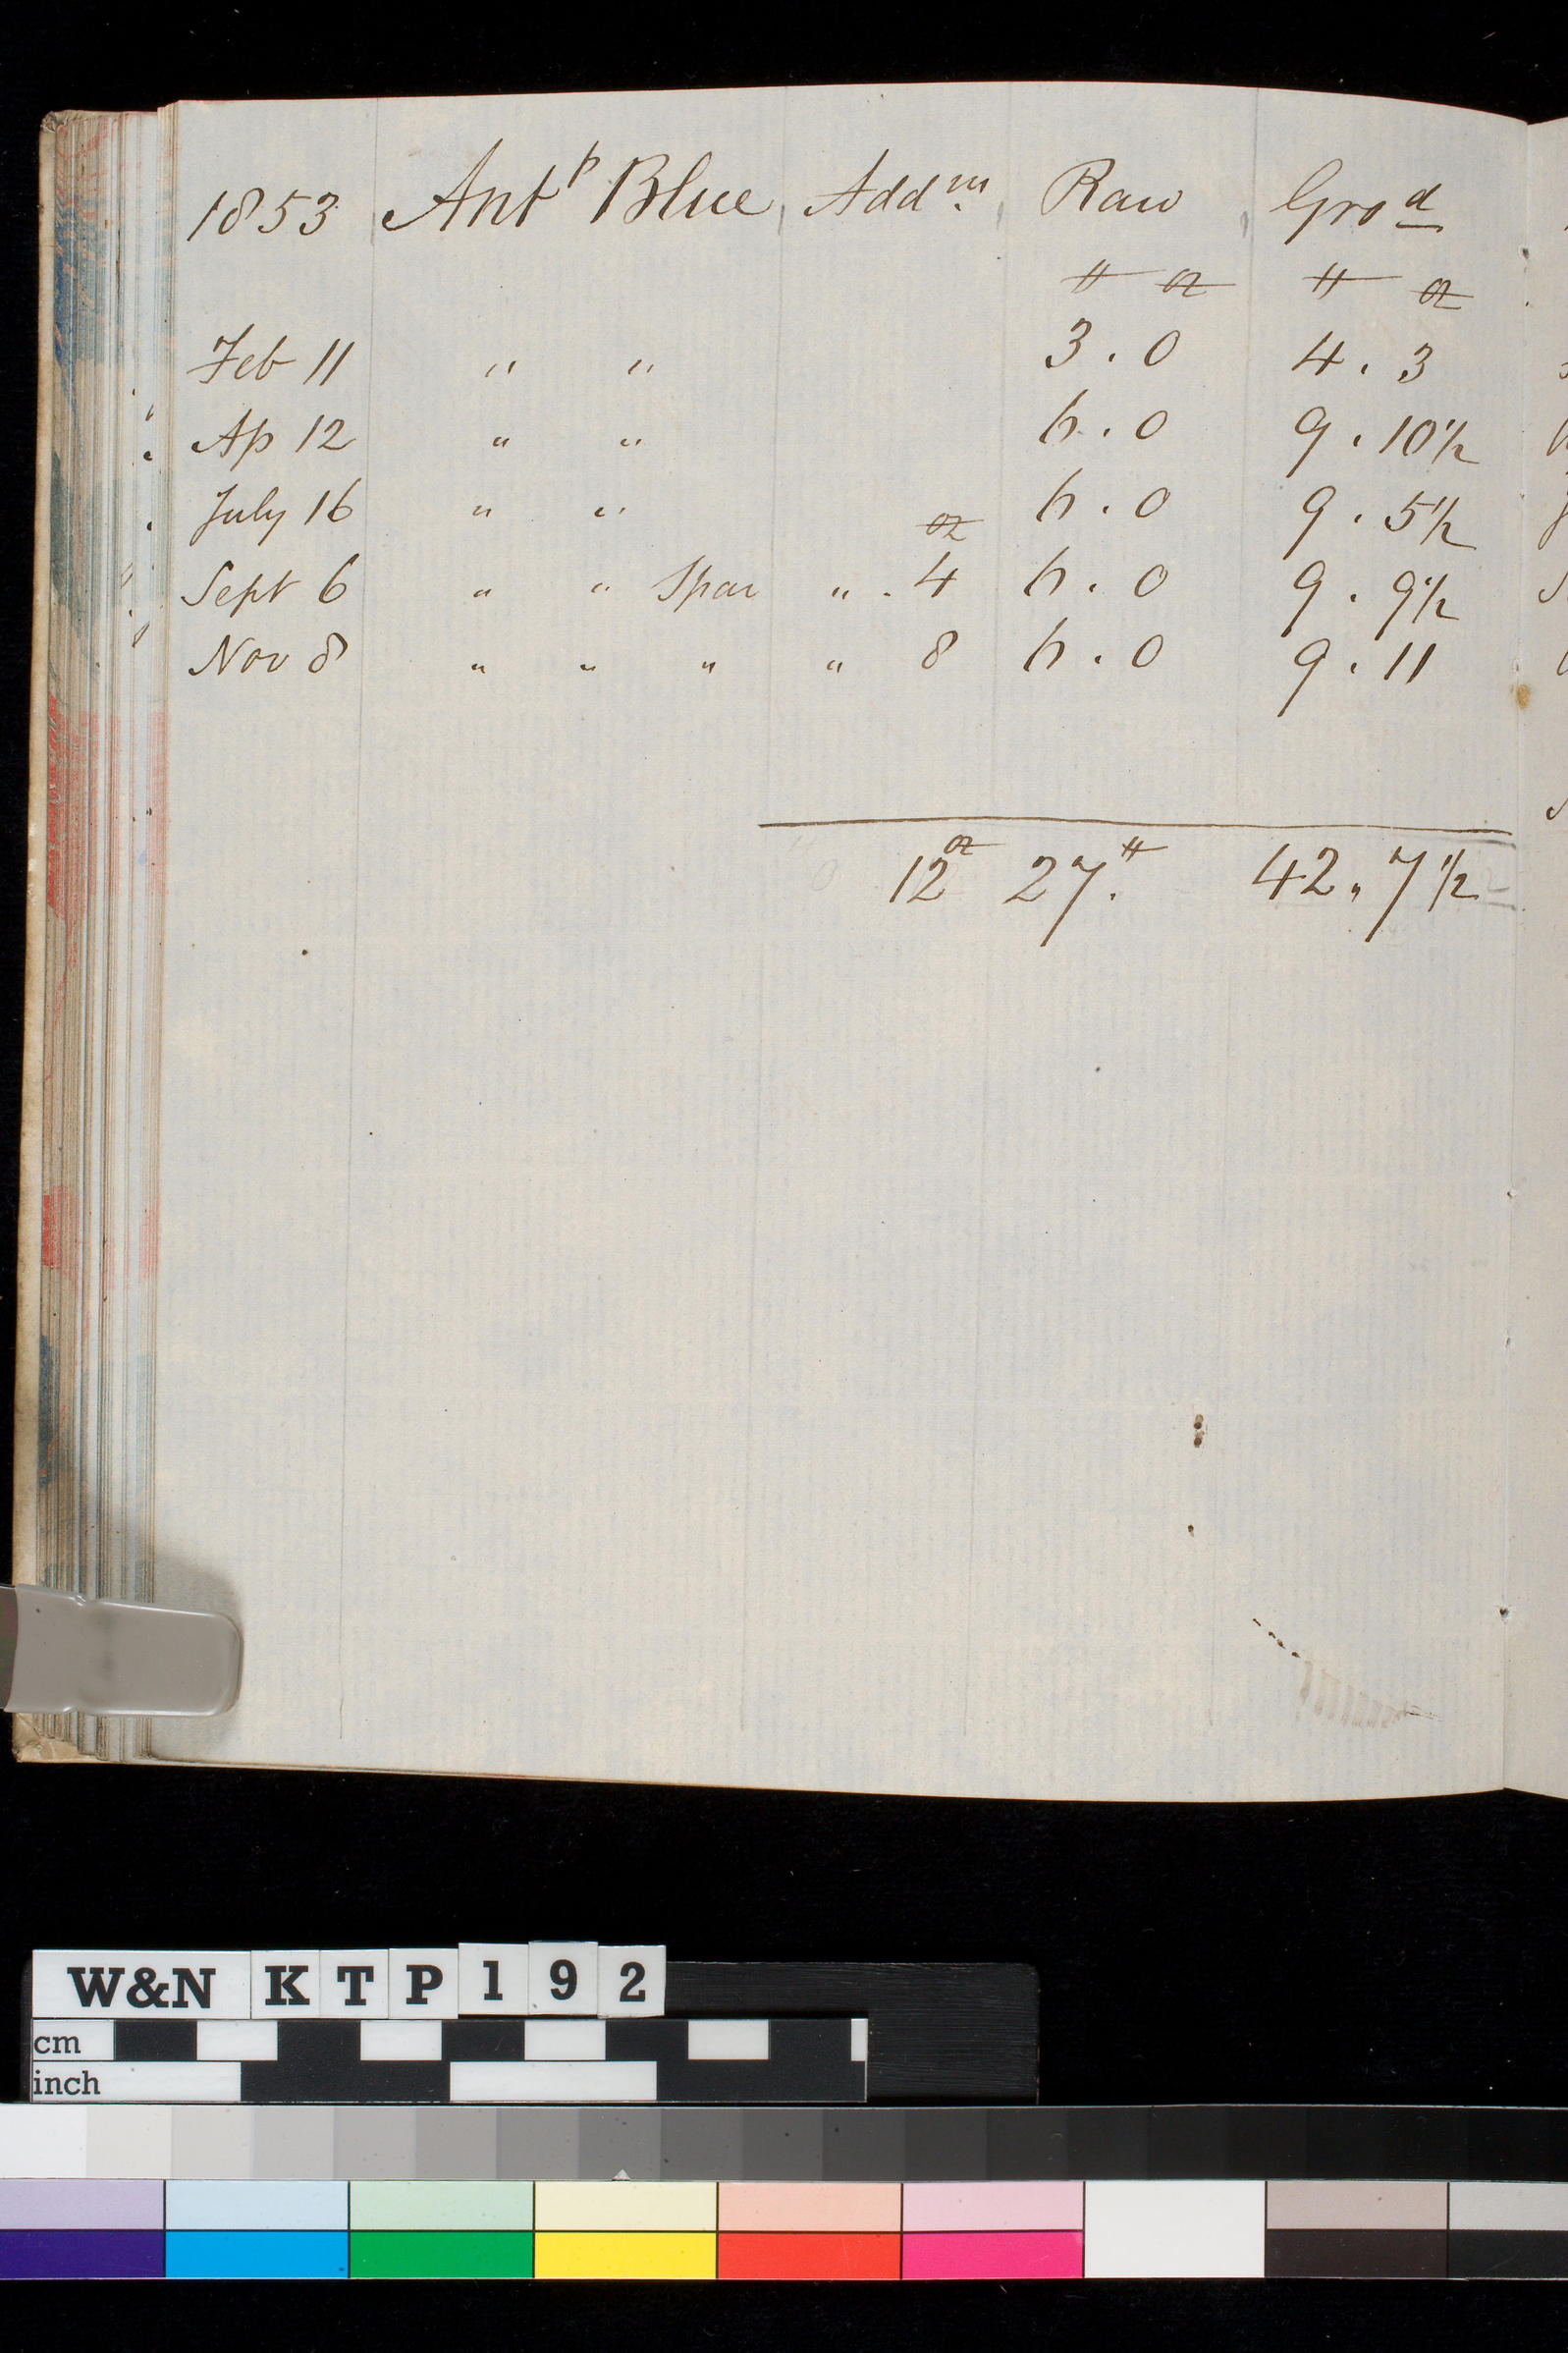 1853 Antp Blue Addn. Raw Grod
lb oz lb oz
Feb 11 " " 3.0 4.3
Ap 12 " " 6.0 9.10½
July 16 " " 6.0 9.5½
oz
Sept 6 " " Spar " . 4 6.0 9.9½
Nov 8 " " " " 8 6.0 9.11
12oz 27.lb 42.7½
W&N KTP192
cm
inch